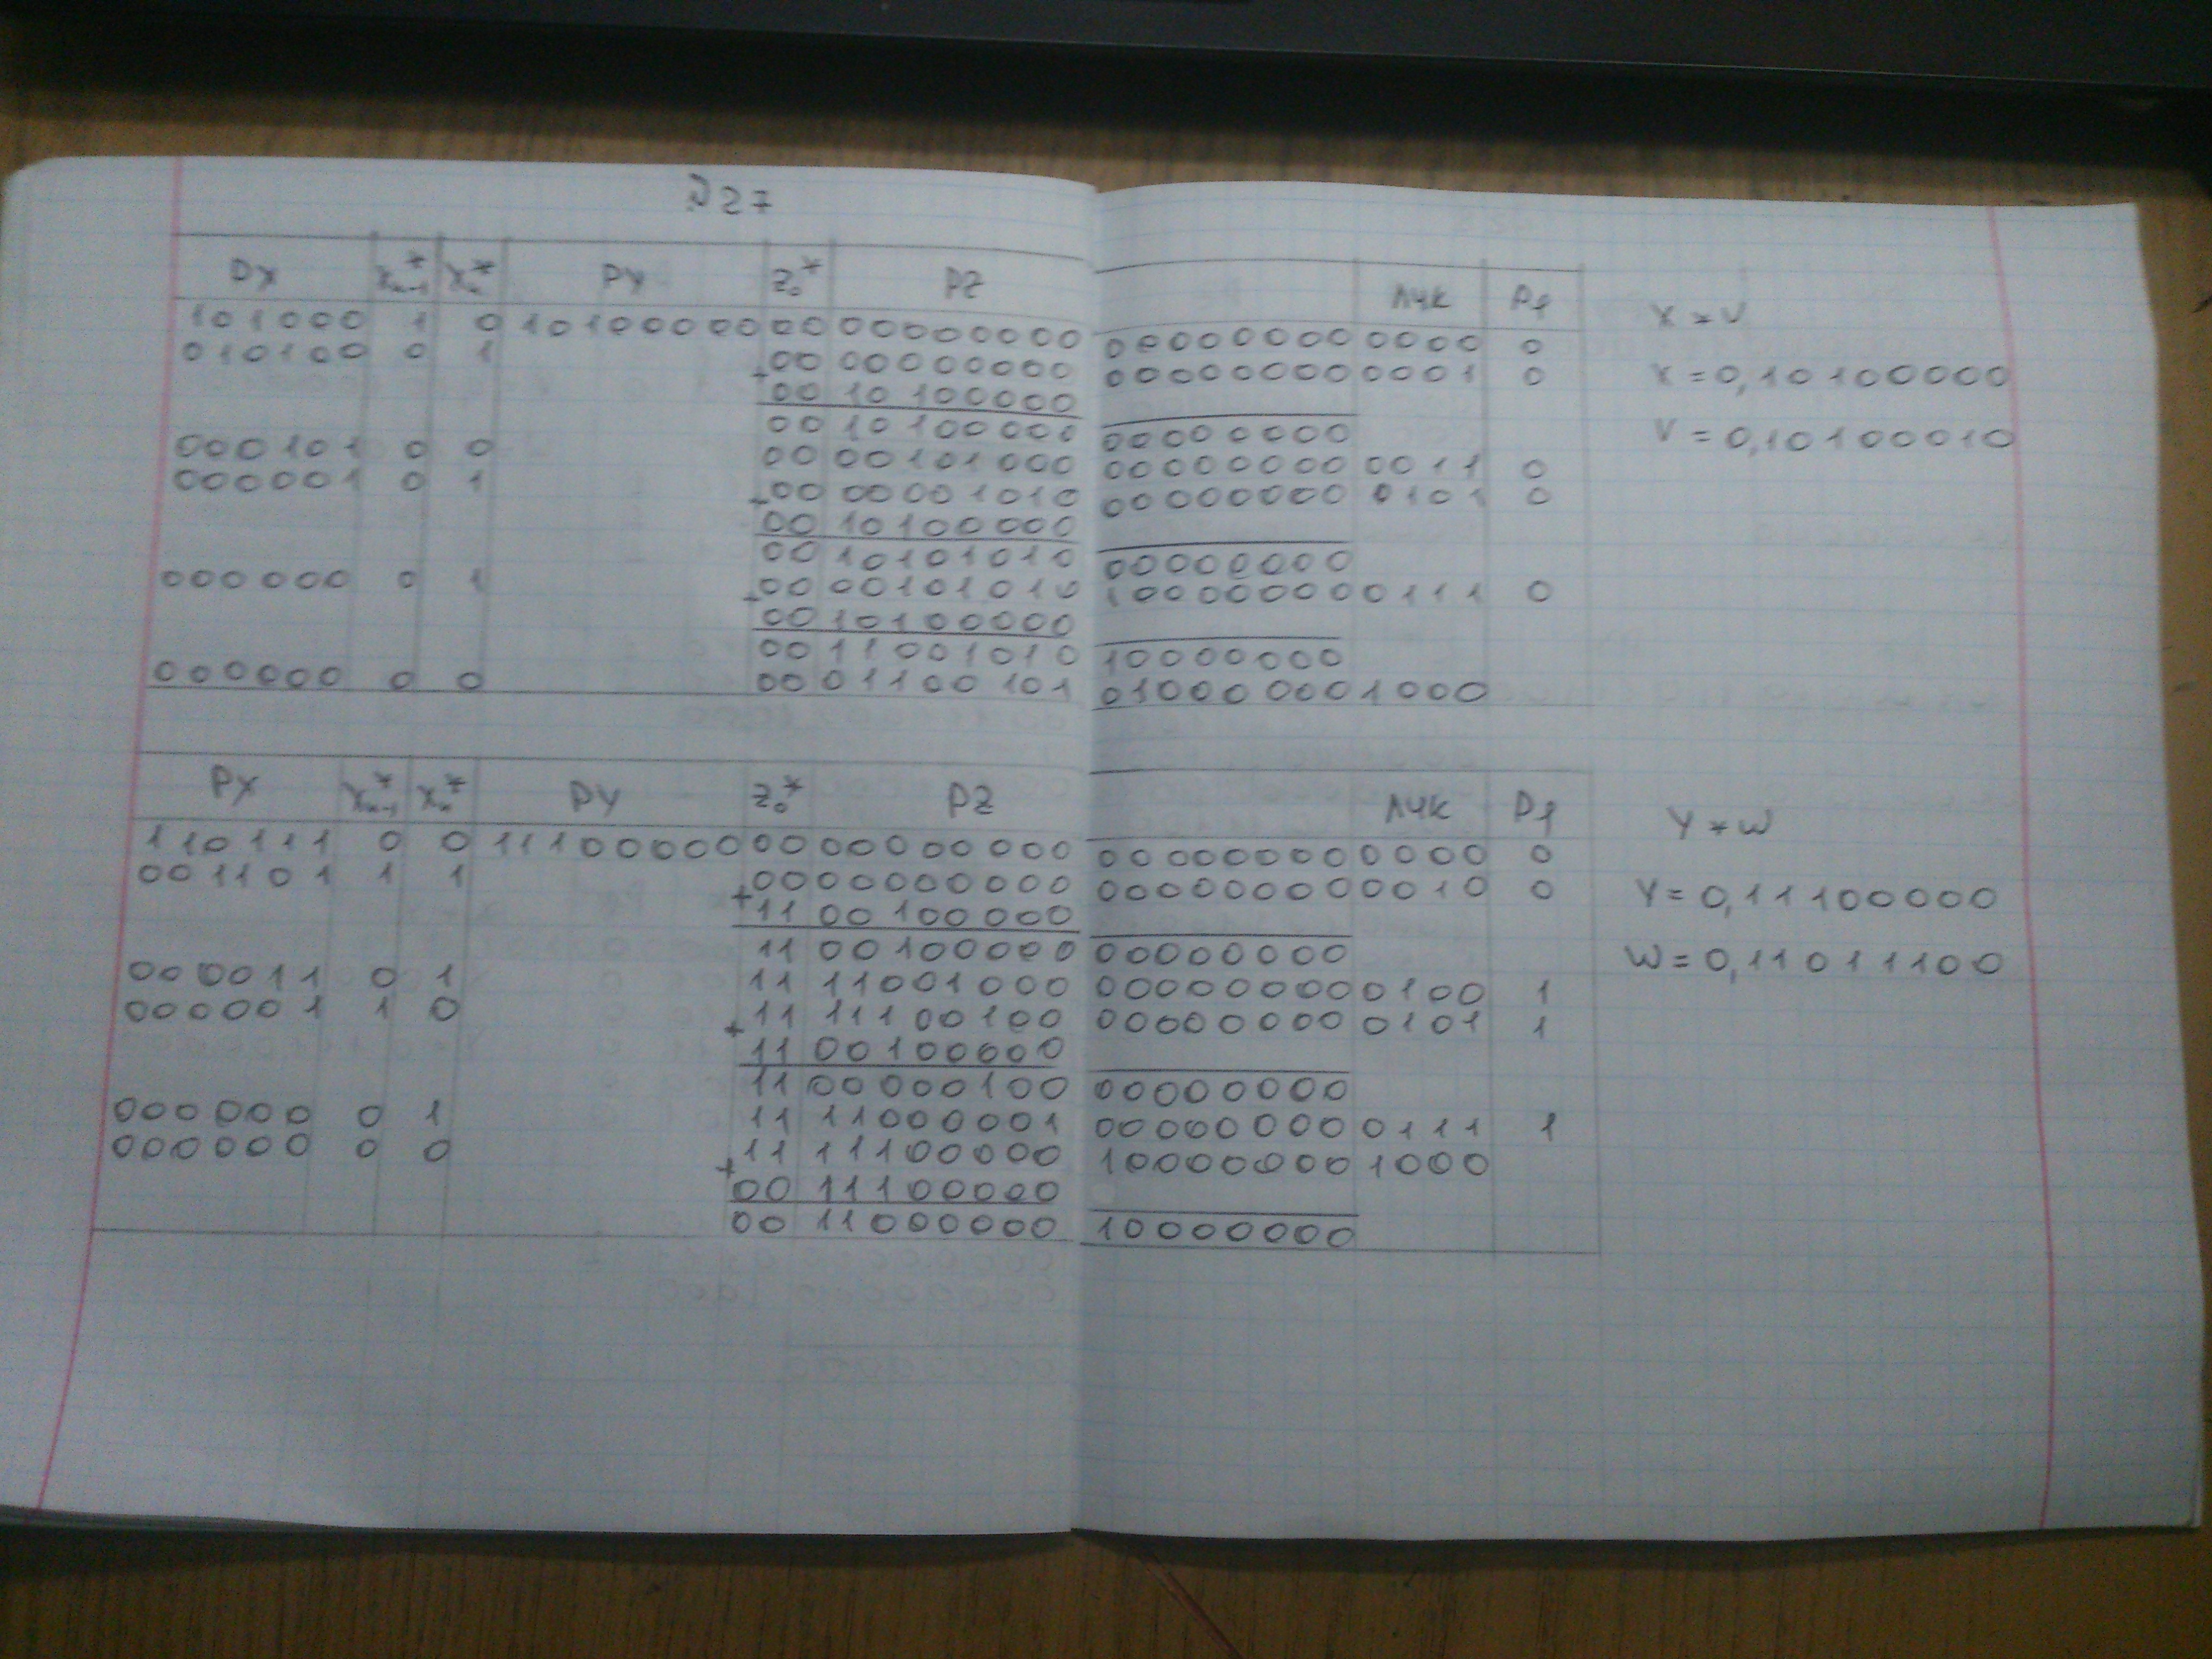 №27
РХ X*n-1 X*n РУ Z0* PZ ЛЧК Рf
101000 1 0 10100000 00 00000000 00000000 0000 0
010100 0 1 00 00000000 00000000 0001 0
+ 00 10 100000
00 10 100000 00000000
000101 0 0 00 00101000 00000000 0011 0
000001 0 1 00 00001010 00000000 0101 0
+ 00 10100000
00 10101010 00000000
000000 0 1 00 00101010 10000000 0111 0
+ 00 10100000
00 11001010 10000000
000000 0 0 00 01100101 01000000 1000
X * V
X = 0,10100000
V = 0,10100010
РХ X*n-1 X*n РУ Z0* PZ ЛЧК Рf
110111 0 0 11100000 00 00000000 00000000 0000 0
001101 1 1 00 00000000 00000000 0010 0
+ 11 00100000
11 00100000 00000000
000011 0 1 11 11001000 00000000 0100 1
000001 1 0 11 11100100 00000000 0101 1
+ 11 00100000
11 00000100 00000000
000000 0 1 11 11000001 00000000 0111 1
000000 0 0 11 11100000 10000000 1000
+ 00 11100000
00 11000000 10000000
Y * W
Y = 0,11100000
W = 0,11011100